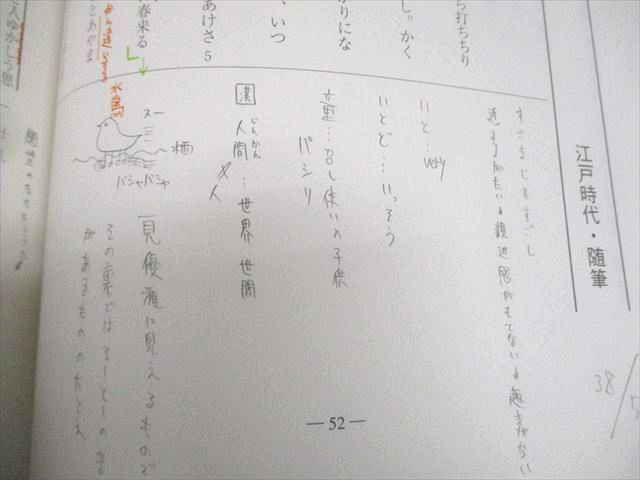 江戸時代・随筆
38/5
すさまじ＝すごし
近よりがたい→親近感がもてない→趣きがない
ら打ちちり
し。かく
かりにな
、いつ
あけさ 5
春来る
いと…very
いとど…いっそう
童…召し使いの子供
パシリ
漢 人間…世界 世間
じんかん
×人
水鳥
スー
水面
バシャバシャ
一見優雅に見えるもので
その裏では そーとーの苦
があるもののたとえ
人ゆかしう思
— 52 —